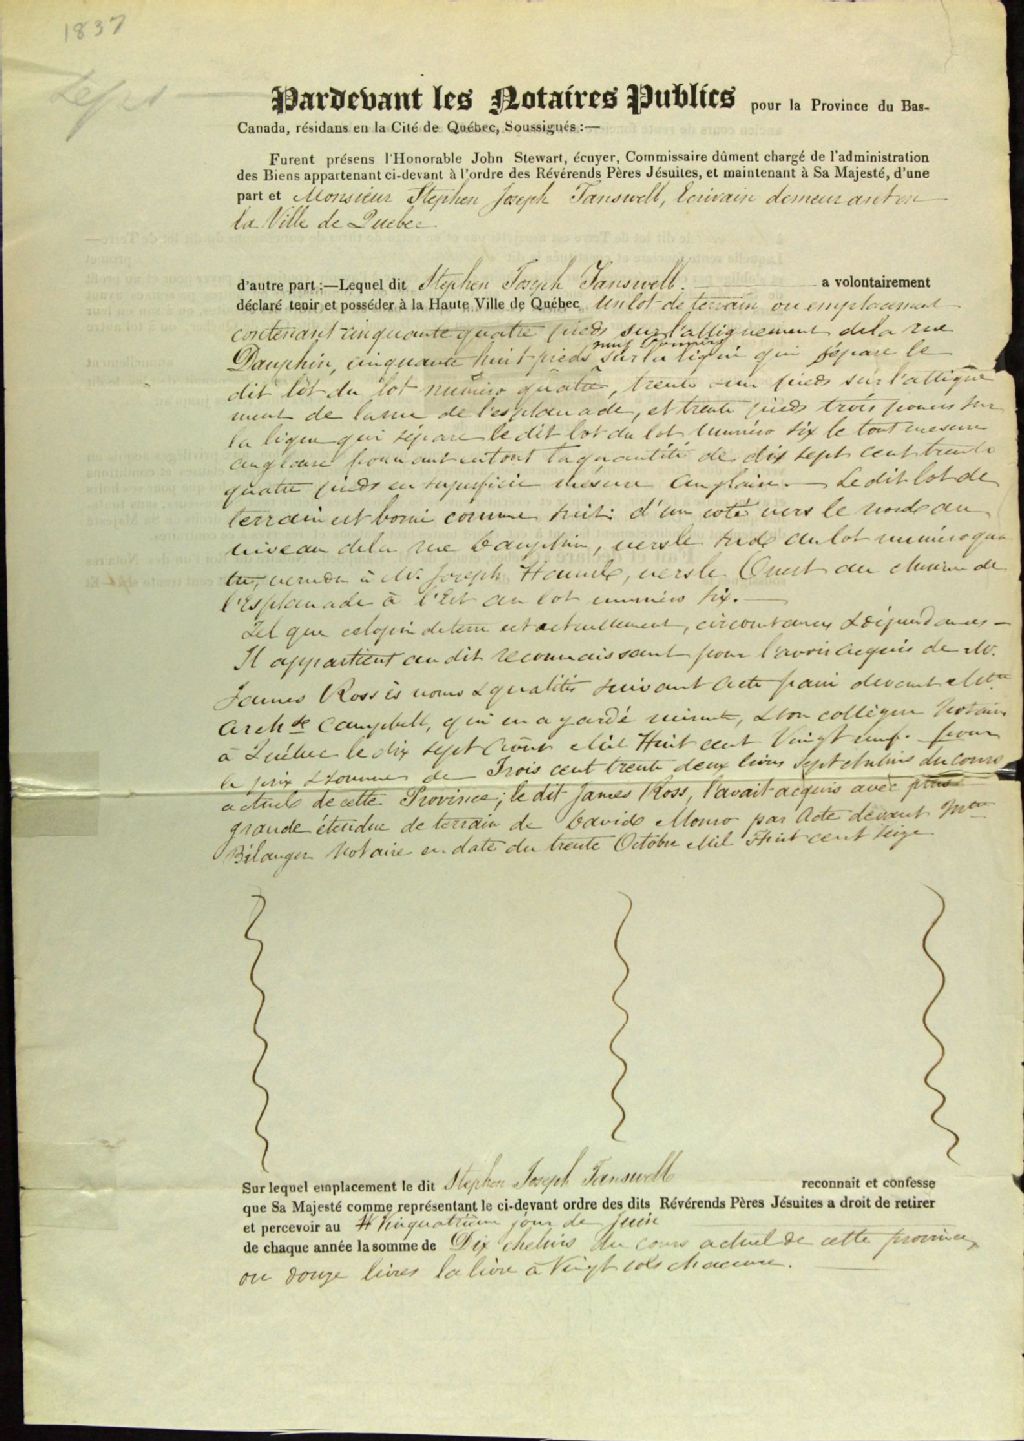 1837
Pardevant les Notaires Publics pour la Province du Bas-
Canada, résidans en la Cité de Québec, Soussignés :—
Furent présens l'Honorable John Stewart, écuyer, Commissaire dûment chargé de l'administration
des Biens appartenant ci-devant à l'ordre des Révérends Pères Jésuites, et maintenant à Sa Majesté, d'une
part et Monsieur Stephen Joseph Tanswell, Ecrivain demeurant en
la Ville de Quebec
d'autre part :—Lequel dit Stephen Joseph Tanswell. a volontairement
déclaré tenir et posséder à la Haute Ville de Québec un lot de terrain ou emplacement
contenant cinquante quatre pieds sur l'allignement de la rue
Dauphin, cinquante huit pieds sur la ligne qui sépare le
dit lôt du lot numéro quâtre, trente un pieds sur l'alligne
ment de la rue de l'esplanade, et trente pieds trois pouces sur
la ligne qui sépare le dit lot du lot numéro six le tout mesure
anglaise formant en tout la quantité de dix sept cent trente
quatre pieds en superficie mesure anglaise. — Le dit lot de
terrain est borné comme suit: d'un coté vers le nord au
niveau de la rue Dauphin, vers le sud au lot numéro qua
tre, vendu à Mr. Joseph, vers le Ouest au chemin de
l'Esplanade à l'Est au lot numéro six. —
Tel que est actuellement, circonstances & dépendances —
Il appartient au dit reconnaissant pour l'avoir acquis de Mr.
James Ross ès noms & qualités suivant acte passé devant Mtre
Archd. Campbell, qui en a gardé minute, & son collègue Notaires
à Québec le dix sept Août Mil Huit cent Vingt neuf. pour
le prix & somme de Trois cent trente deux livres sept chelins du cours
actuel de cette Province; le dit James Ross, l'avait acquis avec plus
grande étendue de terrain de David Monro par Acte devant Mtre
Bélanger Notaire en date du trente Octobre Mil Huit cent Seize
Sur lequel emplacement le dit Stephen Joseph Tanswell reconnait et confesse
que Sa Majesté comme représentant le ci-devant ordre des dits Révérends Pères Jésuites a droit de retirer
et percevoir au Vingquatrième jour de Juin
de chaque année la somme de Dix chelins du cours actuel de cette province,
ou douze livres la livre à Vingt sols chacune.